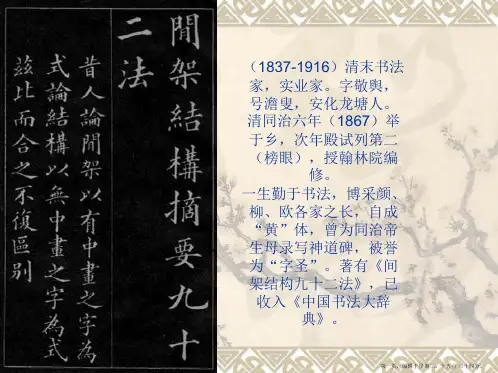 間架結構摘要九十
二法
昔人論間架以有中畫之字為
式論結構以無中畫之字為式
茲比而合之不復區別
（1837-1916）清末书法
家，实业家。字敬舆，
号澹叟，安化龙塘人。
清同治六年（1867）举
于乡，次年殿试列第二
（榜眼），授翰林院编
修。
一生勤于书法，博采颜、
柳、欧各家之长，自成
“黄”体，曾为同治帝
生母录写神道碑，被誉
为“字圣”。著有《间
架结构九十二法》，已
收入《中国书法大辞
典》。